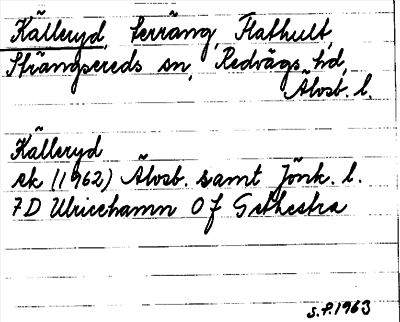 Källeryd, terräng, Flathult,
Strängsereds sn, Redvägs hd,
Älvsb. l.
Källeryd
ek (1962) Älvsb. samt Jönk. l.
7D Ulricehamn 0 f Gethestra
S.P. 1963